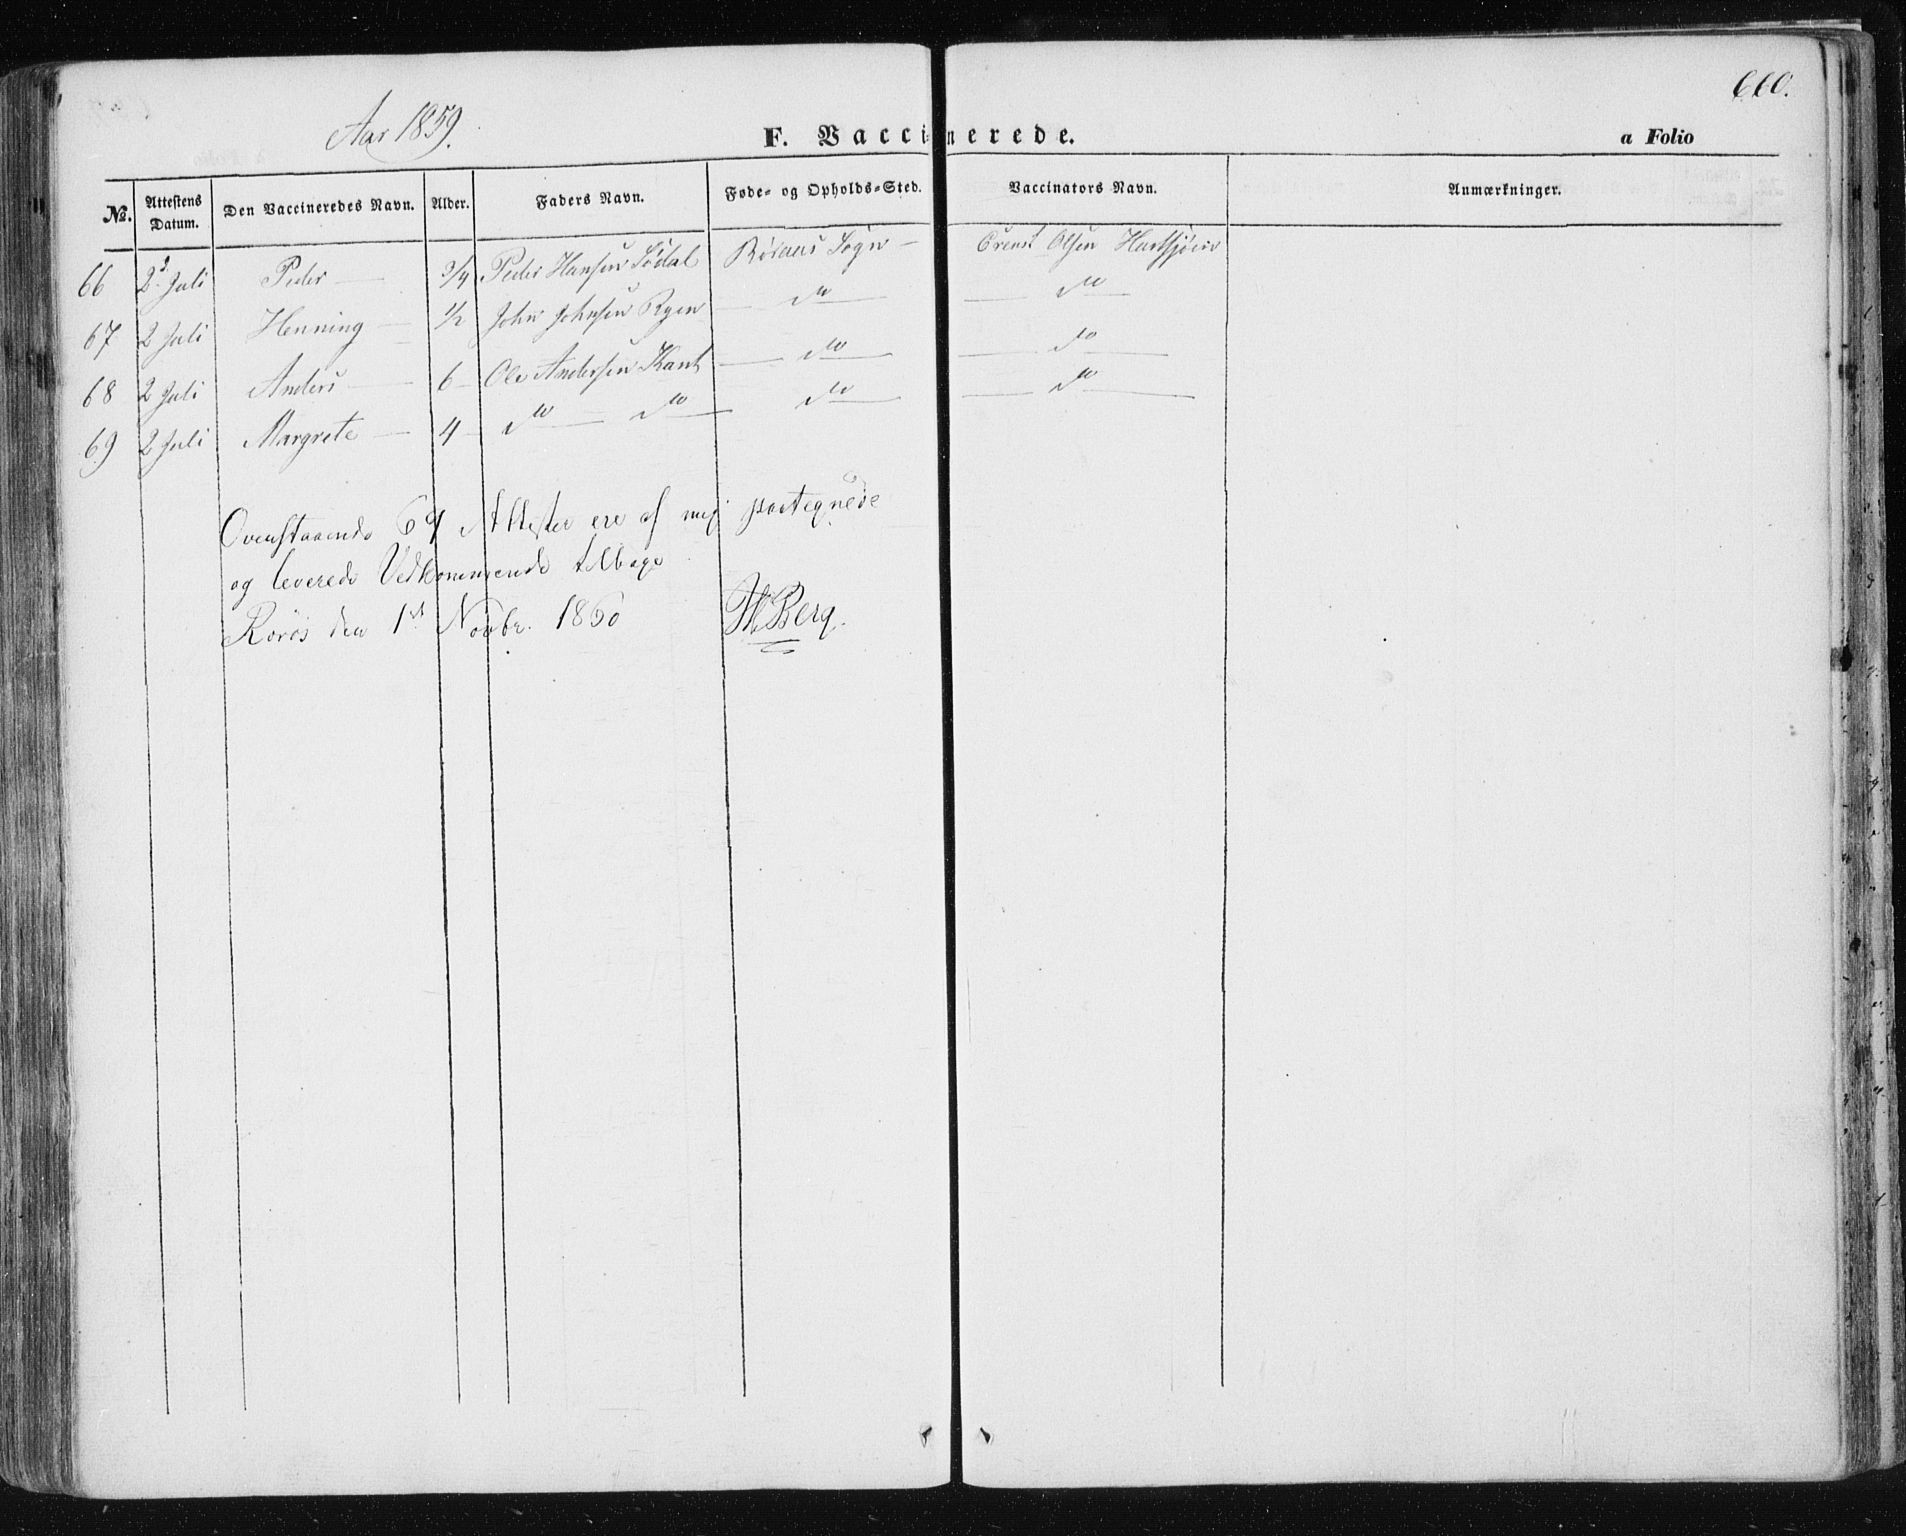 660.
Aar 1859.
F. Vaccinerede.
a Folio
No. Attestens Datum. Den Vaccineredes Navn. Alder. Faders Navn. Føde- og Opholds-Sted. Vaccinators Navn. Anmærkninger.
66 2d Juli Peder — 3/4 Peder Hansen Sødal Röraas Sogn — Erenst Olsen
67 2 Juli Henning — 1/2 John Johnsen Ryen — do — — do —
68 2 Juli Anders — 6 — Ole Andersen Kant — do — — do —
69 2 Juli Margrete — 4 — do — do — do — — do —
Ovenstaaende 69 Attester ere af mig paategnede
og leverede Vedkommende tilbage
Rørós den 1st Novbr. 1860 Th Berg.